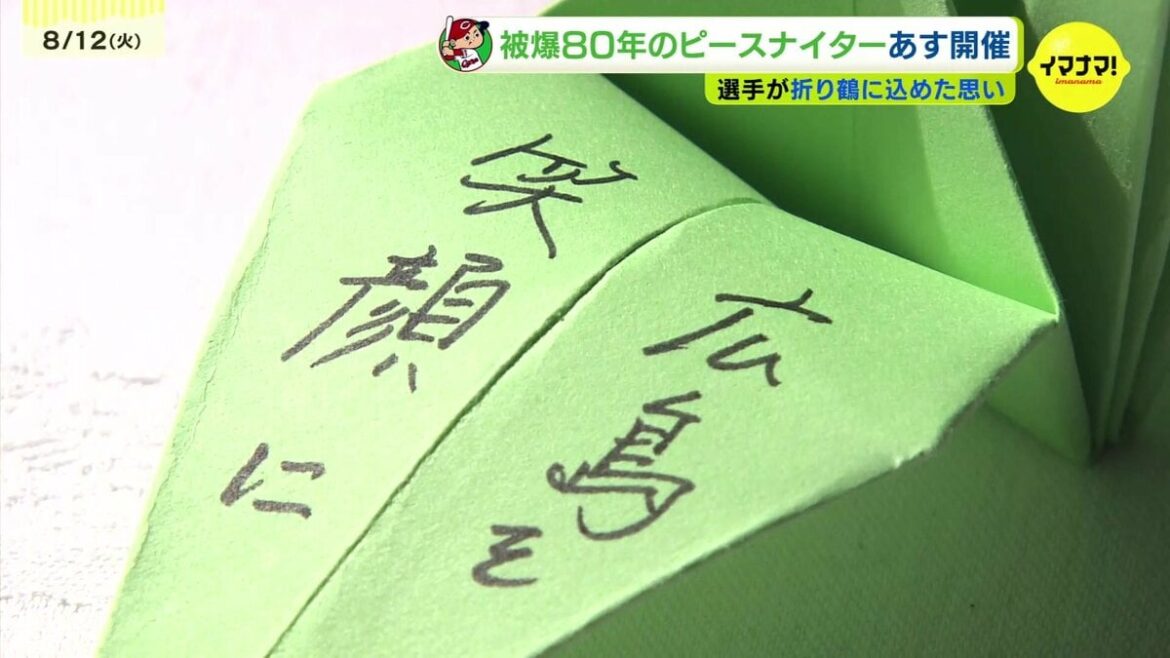 8/12(火)
被爆80年のピースナイターあす開催
選手が折り鶴に込めた思い
イマナマ!
imanama
Carp
広島を
笑顔に